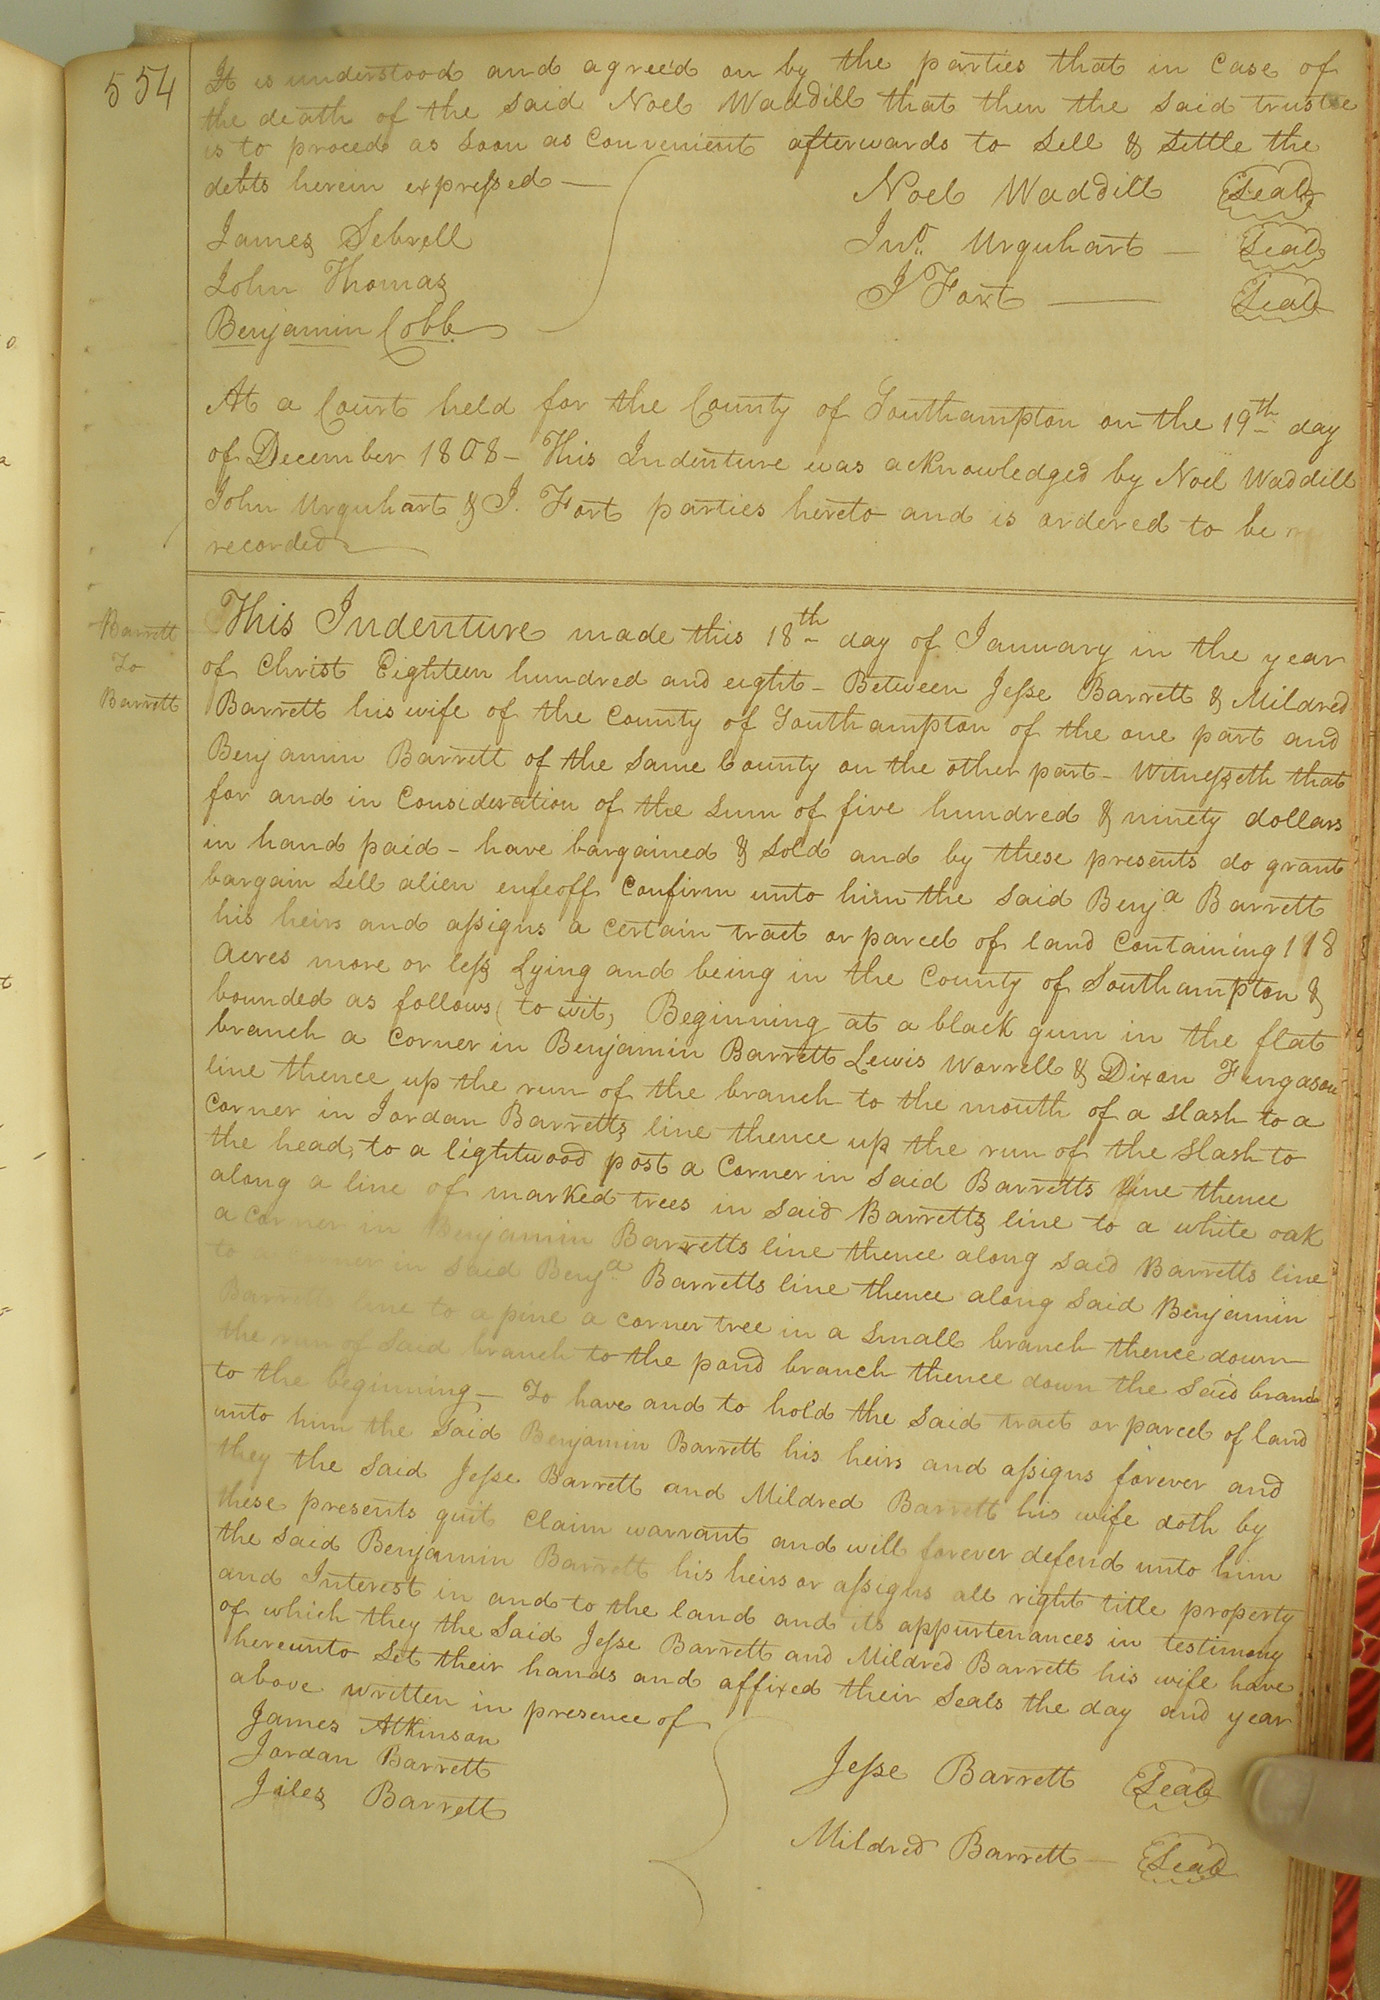 554
It is understood and agreed on by the parties that in Case of
the death of the said Noel Waddill that then the said trustee
is to proceed as soon as Convenient afterwards to sell & settle the
debts herein expressed —
Noel Waddill Seal
James Sebrell
Jno. Urquhart — Seal
John Thomas
J Fort — Seal
Benjamin Cobb
At a Court held for the County of Southampton on the 19th day
of December 1808 – This Indenture was acknowledged by Noel Waddill
John Urquhart & J. Fort parties hereto and is ordered to be
recorded
Barrett
To
Barrett
This Indenture made this 18th day of January in the year
of Christ Eighteen hundred and eight – Between Jesse Barrett & Mildred
Barrett his wife of the County of Southampton of the one part and
Benjamin Barrett of the same County on the other part – Witnesseth that
for and in Consideration of the sum of five hundred & ninety dollars
in hand paid – have bargained & sold and by these presents do grant
bargain sell alien enfeoff Confirm unto him the said Benja Barrett
his heirs and assigns a certain tract or parcel of land Containing 118
acres more or less lying and being in the County of Southampton &
bounded as follows (to wit, Beginning at a black gum in the flat
branch a Corner in Benjamin Barrett Lewis Worrell & Dixon Furgason
line thence up the run of the branch to the mouth of a slash to a
Corner in Jordan Barretts line thence up the run of the slash to
the head, to a lightwood post a Corner in said Barretts line thence
along a line of marked trees in said Barretts line to a white oak
a corner in Benjamin Barretts line thence along said Barretts line
to a corner in said Benja Barretts line thence along said Benjamin
Barretts line to a pine a corner tree in a small branch thence down
the run of said branch to the pond branch thence down the said branch
to the beginning – To have and to hold the said tract or parcel of land
unto him the said Benjamin Barrett his heirs and assigns forever and
they the said Jesse Barrett and Mildred Barrett his wife doth by
these presents quit Claim warrant and will forever defend unto him
the said Benjamin Barrott his heirs or assigns all right title property
and Interest in and to the land and its appurtenances in testimony
of which they the said Jesse Barrett and Mildred Barrett his wife have
hereunto set their hands and affixed their seals the day and year
above written in presence of
James Atkinson
Jordan Barrett
Jesse Barrett Seal
Jiles Barrett
Mildred Barrett — Seal